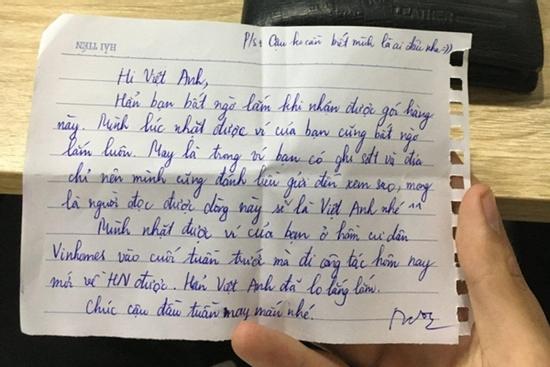 HẢI TIẾN
P/s: Cậu ko cần biết mình là ai đâu nha :))
LEATHER
Hi Việt Anh,
Hẳn bạn bất ngờ lắm khi nhận được gói hàng
này. Mình lúc nhặt được ví của bạn cũng bất ngờ
lắm luôn. May là trong ví bạn có ghi sđt và địa
chỉ nên mình cũng đánh liều gửi đến xem sao, mong
là người đọc được dòng này sẽ là Việt Anh nhé ^^
Mình nhặt được ví của bạn ở hầm cư dân
Vinhomes vào cuối tuần trước mà đi công tác hôm nay
mới về HN được. Hẳn Việt Anh đã lo lắng lắm.
Chúc cậu đầu tuần may mắn nhé.